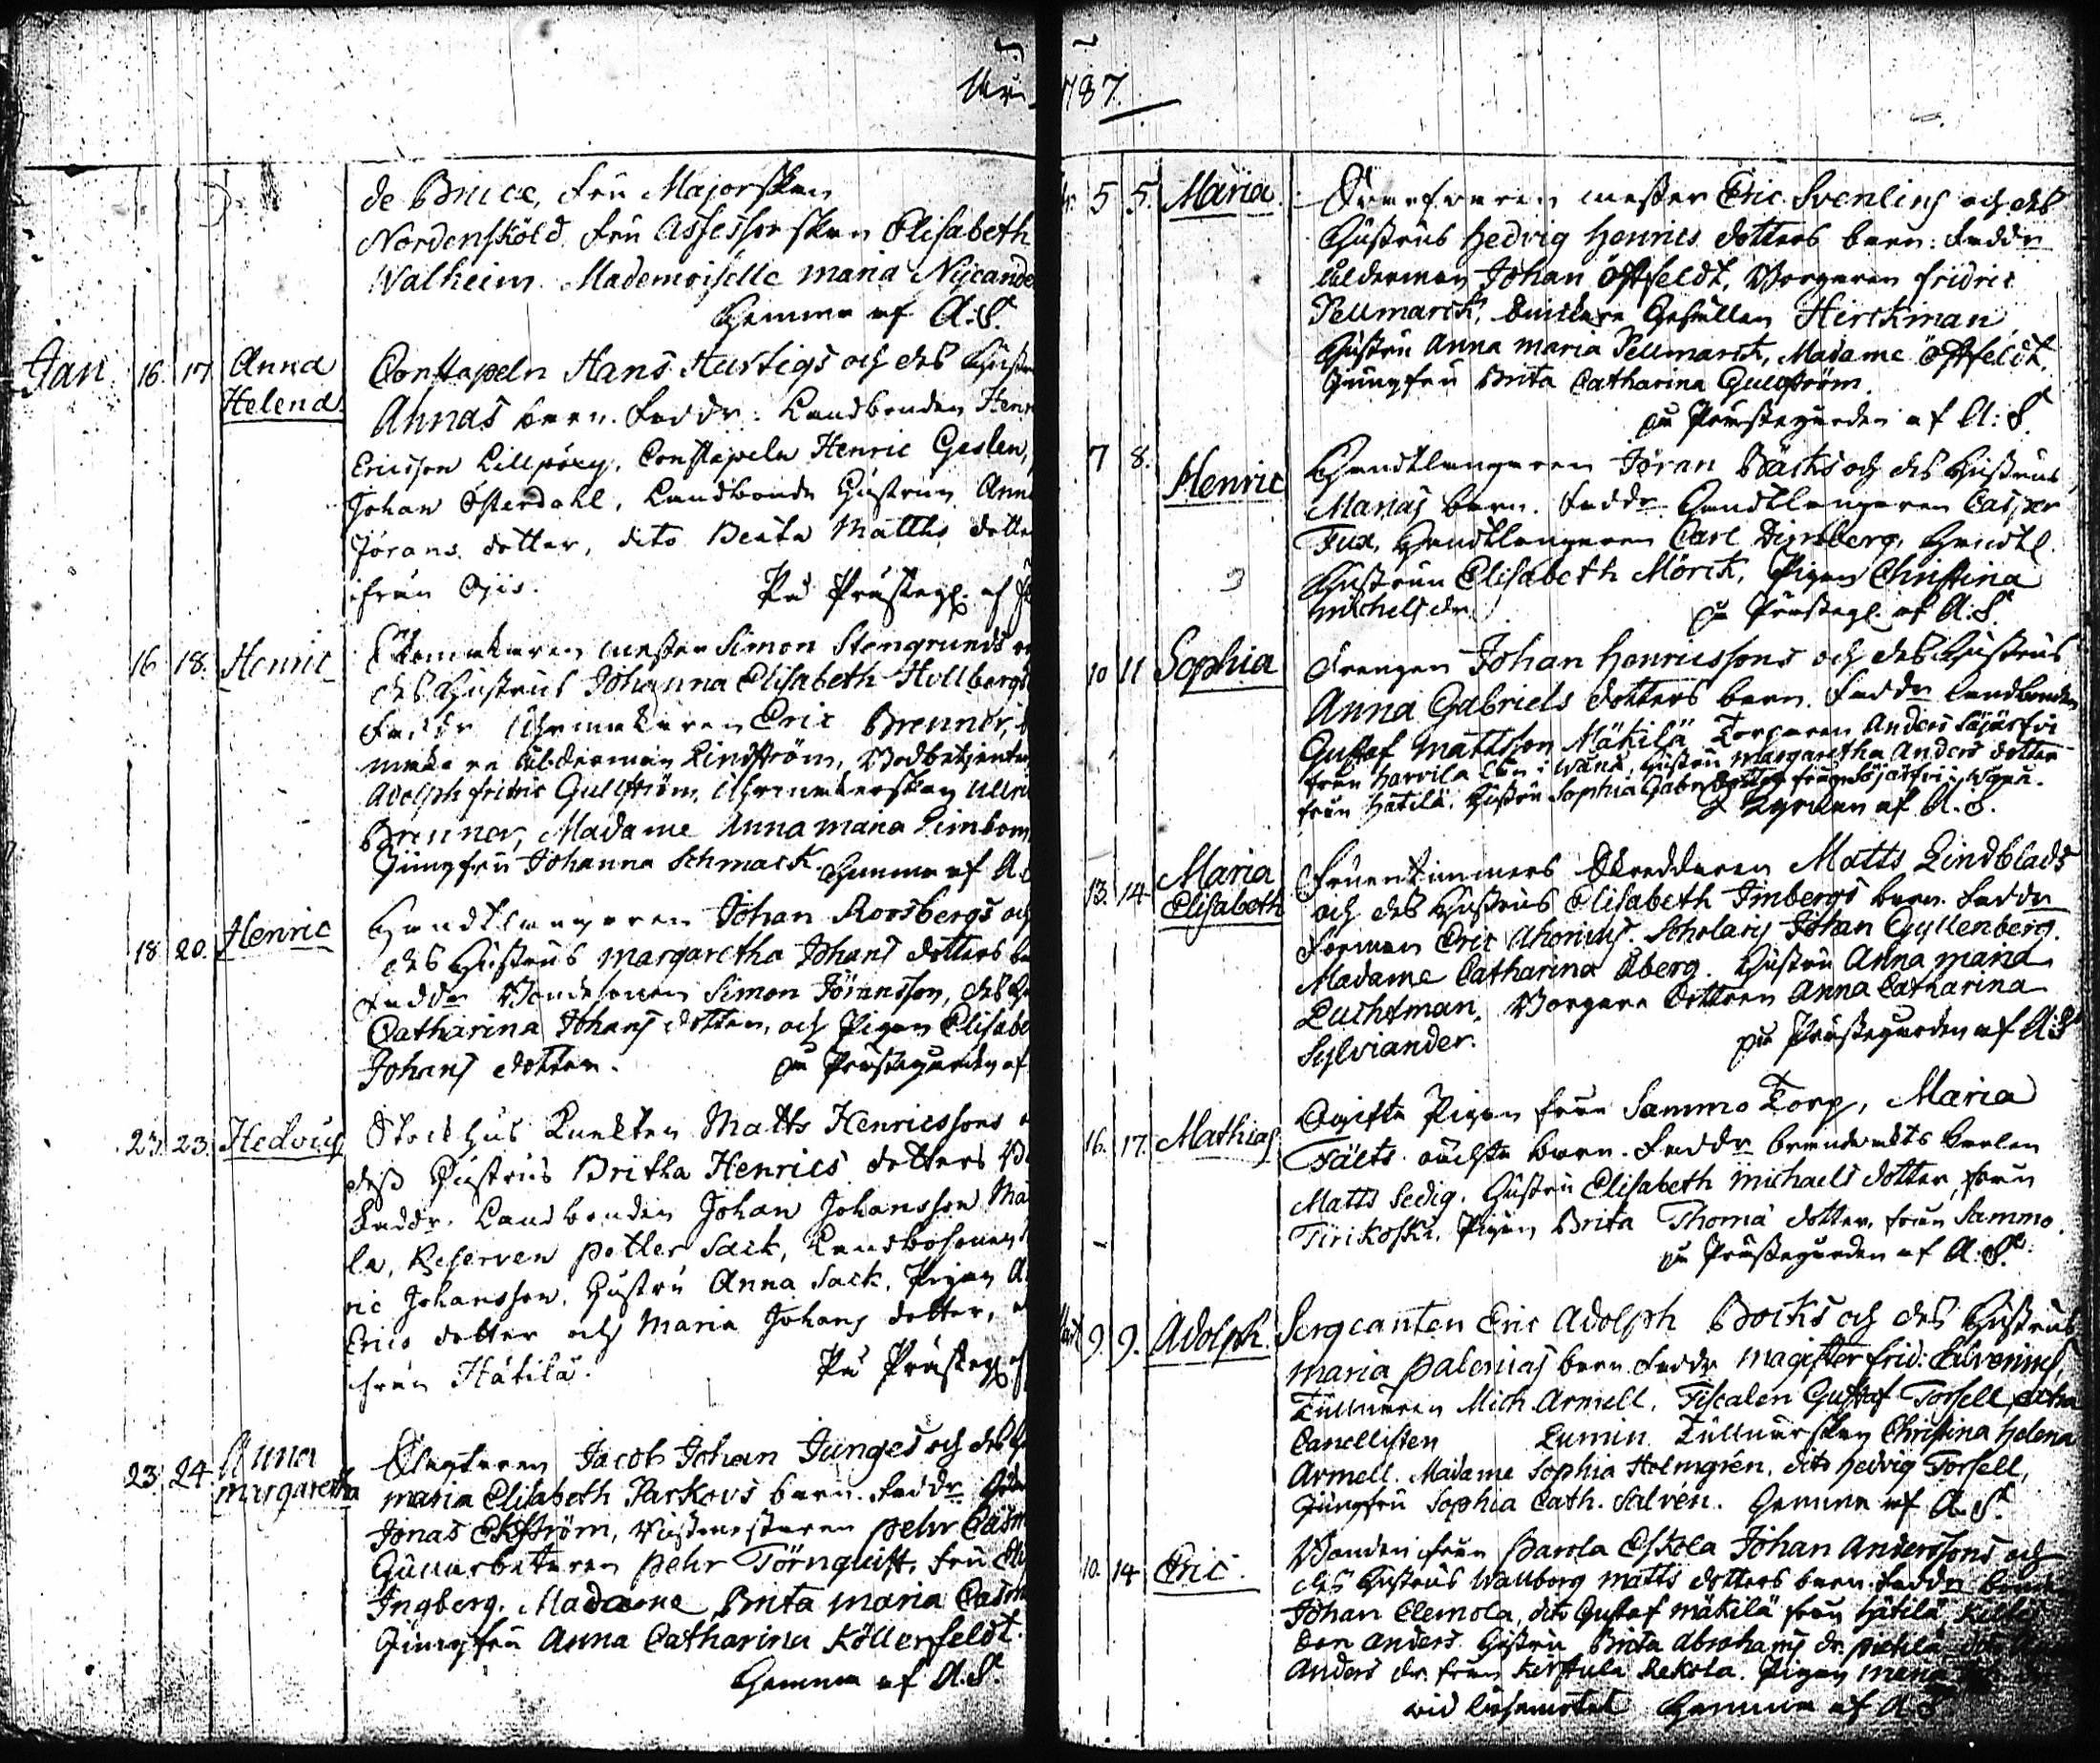 År 1787.
de Bruce, Fru Majorskan
Nordenskiöld. Fru Assessorskan Elisabeth
Walheim. Mademoiselle Maria Nycande
Hemma af A: S.
Jan 16. 17 Anna Helena
Constapeln Hans Hastigs och des Hustru
Annas barn. Faddr: Landbonden Henr
Ericsson Lillpörg, Constapeln Henric Geslen,
Johan Österdahl, Landbonde Hustrun Anna
Jörans dotter, dito Beata Matths dotter
ifrån Ojis. På Prästeg. af
16 18. Henric
Skomakaren mester Simon Stengrunds
des Hustrus Johanna Elisabeth Hollbergs
Faddr Uhrmakaren Eric Brenner,
makare ålderman Lindström, Vedbetjenten
Adolph Fridric Gullström, Uhrmakerskan Ulri
Brenner, Madame Anna Maria Limbom
Jungfru Johanna Schmack. Hemma af A.
18 20. Henric
Handtlangaren Johan Roosbergs och
des Hustrus Margaretha Johans dotters
Faddr Bondesonen Simon Jöransson, des
Catharina Johans dotter, och Pigan Elisabe
Johans dotter. på Prästegården af
23. 23. Hedvig
Stockhus Knekten Matts Henricssons
dess Hustrus Britha Henrics dotters
Faddr. Landbonden Johan Johansson Mä
la, Reserven Petter Sack, Landbosonen
ric Johansson, Hustru Anna Sack, Pigan
Erics dotter och Maria Johans dotter,
från Hätilä. På Prästeg. af
23. 24 Anna Margaretha
Slagtaren Jacob Johan Junges och des
Maria Elisabeth Parkovs barn. Faddr
Jonas Ekström, Pehr Casm
Pehr Törnquist, Fru Eli
Ingberg. Madame Brita Maria Casm
Jungfru Anna Catharina Köllerfeldt.
Hemma af A. S.
5 5. Maria.
mester Eric Svenlins och des
Hustrus Hedvig Henrics dotters barn: Faddr
ålderman Johan Öfffeldt, Borgaren Fridric
Pellmarck, Gesällen Hirckman,
Hustru Anna Maria Pellmarck, Madame Öfffeldt.
Jungfru Brita Catharina Gullström.
på Prästegården af A: S.
7 8. Henric
Handtlangaren Jöran Bäcks och des Hustrus
Marias barn. Faddr. Handtlangaren Casper
Fux, Handtlangaren Carl Dimberg, Handtl.
Hustrun Elisabeth Mörck, Pigan Christina
Michels dr. på Prästeg. af A. S.
10 11 Sophia
Drengen Johan Henricssons och des Hustrus
Anna Gabriels dotters barn. Faddr Landbonden
Gustaf Mattsson Mäkilä Torparen Anders Säjärfvi
från Harvila i Wånå, Hustru Margaretha Anders dotter
från Hätilä. Hustru Sophia Gabr dotter från Säjärfvi i Wånå.
i Kyrkan af A. S.
13. 14 Maria Elisabeth
Fruentimmers Skreddaren Matts Lindblads
och des Hustrus Elisabeth Imbergs barn. Faddr
Förman Eric Ahonius. Scholaris Johan Gyllenberg.
Madame Catharina Åberg. Hustru Anna Maria
Luchtman. Borgare Dottren Anna Catharina
Sylviander. på Prästegården af A: S
16. 17. Mathias
Ogifta Pigan från Sammo Torp, Maria
Fälts oächta barn. Faddr Karlen
Matts Sedig. Hustru Elisabeth Michaels dotter, från
Tirikoski. Pigan Brita Thoma dotter, från Sammo.
på Prästegården af A. S.
9. 9. Adolph.
Sergeanten Eric Adolph Bocks och des Hustrus
Maria Palenias barn. Faddr Magister Frid:
Tullnären Mich. Armell. Fiscalen Gustaf Torsell
Cancellisten Lumin Tullnärskan Christina Helena
Armell. Madame Sophia Holmgrén, dito Hedvig Torsell,
Jungfru Sophia Cath. Salvén. Hemma af A. S.
10. 14 Eric.
Bonden från Parola Eskola Johan Anderssons och
des Hustrus Wallborg Matts dotters barn. Faddr
Johan Clemola, dito Gustaf Mäkilä från Hätilä
Anders. Hustru Brita Abrahams dr.
Anders dr. från Kirstula Rekola. Pigan
Hemma af A S